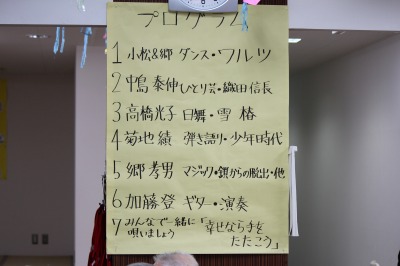 プログラム
1 小松&郷 ダンス・ワルツ
2 中嶋 泰伸 ひとり芸・織田信長
3 高橋光子 日舞・雪椿
4 菊地 績 弾き語り・少年時代
5 郷 孝男 マジック・鎖からの脱出・他
6 加藤登 ギター・演奏
7 みんなで一緒に「幸せなら手を
唄いましょう たたこう」